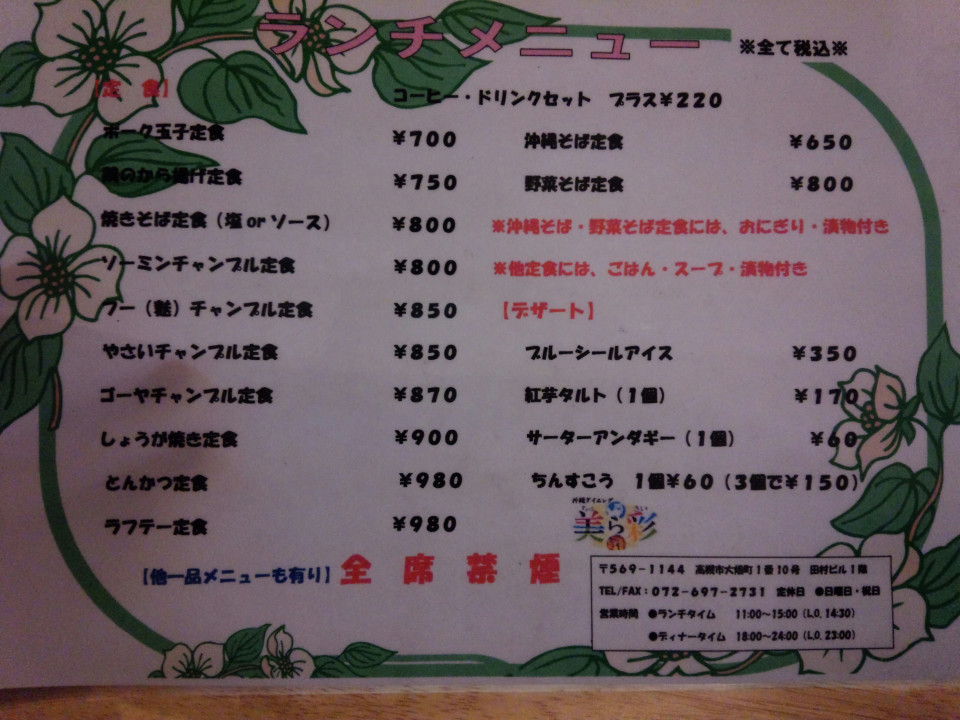 ランチメニュー
※全て税込※
【定 食】
コーヒー・ドリンクセット プラス¥220
ポーク玉子定食 ¥700
鶏のから揚げ定食 ¥750
焼きそば定食(塩orソース) ¥800
ソーミンチャンプル定食 ¥800
フー(麩)チャンプル定食 ¥850
やさいチャンプル定食 ¥850
ゴーヤチャンプル定食 ¥870
しょうが焼き定食 ¥900
とんかつ定食 ¥980
ラフテー定食 ¥980
沖縄そば定食 ¥650
野菜そば定食 ¥800
※沖縄そば・野菜そば定食には、おにぎり・漬物付き
※他定食には、ごはん・スープ・漬物付き
【デザート】
ブルーシールアイス ¥350
紅芋タルト(1個) ¥170
サーターアンダギー(1個) ¥60
ちんすこう 1個¥60(3個で¥150)
【他一品メニューも有り】
全席禁煙
沖縄ダイニング
美ら彩
〒569-1144 高槻市大畑町1番10号 田村ビル1階
TEL/FAX:072-697-2731 定休日 ●日曜日・祝日
営業時間 ●ランチタイム 11:00~15:00(L.O. 14:30)
●ディナータイム 18:00~24:00(L.O. 23:00)